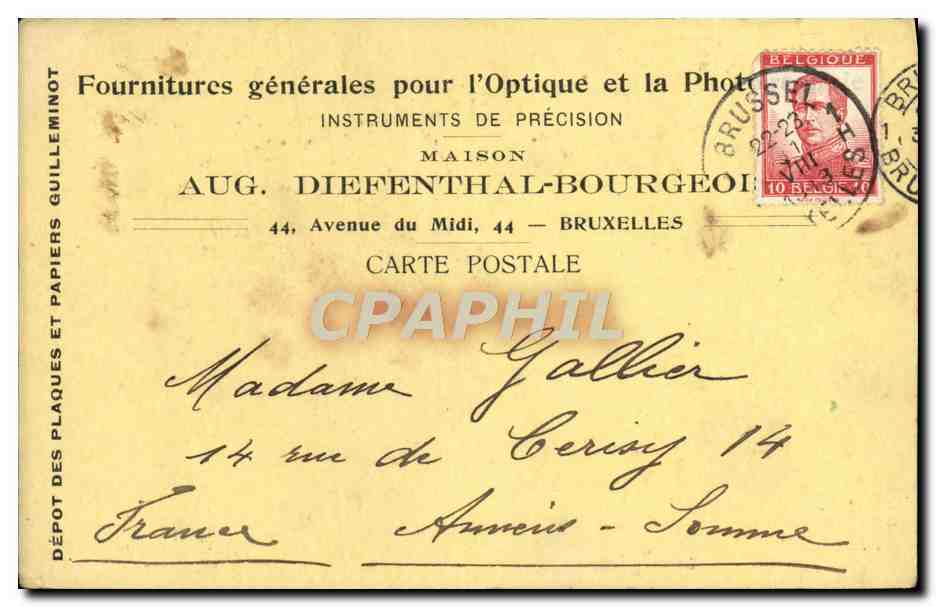 DÉPOT DES PLAQUES ET PAPIERS GUILLEMINOT
Fournitures générales pour l'Optique et la Phot
INSTRUMENTS DE PRÉCISION
MAISON
AUG. DIEFENTHAL-BOURGEOI
44, Avenue du Midi, 44 — BRUXELLES
CARTE POSTALE
BELGIQUE
10 BELGIË 10
BRUSSEL 1
22-23
1
VIII
CPAPHIL
Madame Gallier
14 rue de Cerisy 14
France Amiens - Somme